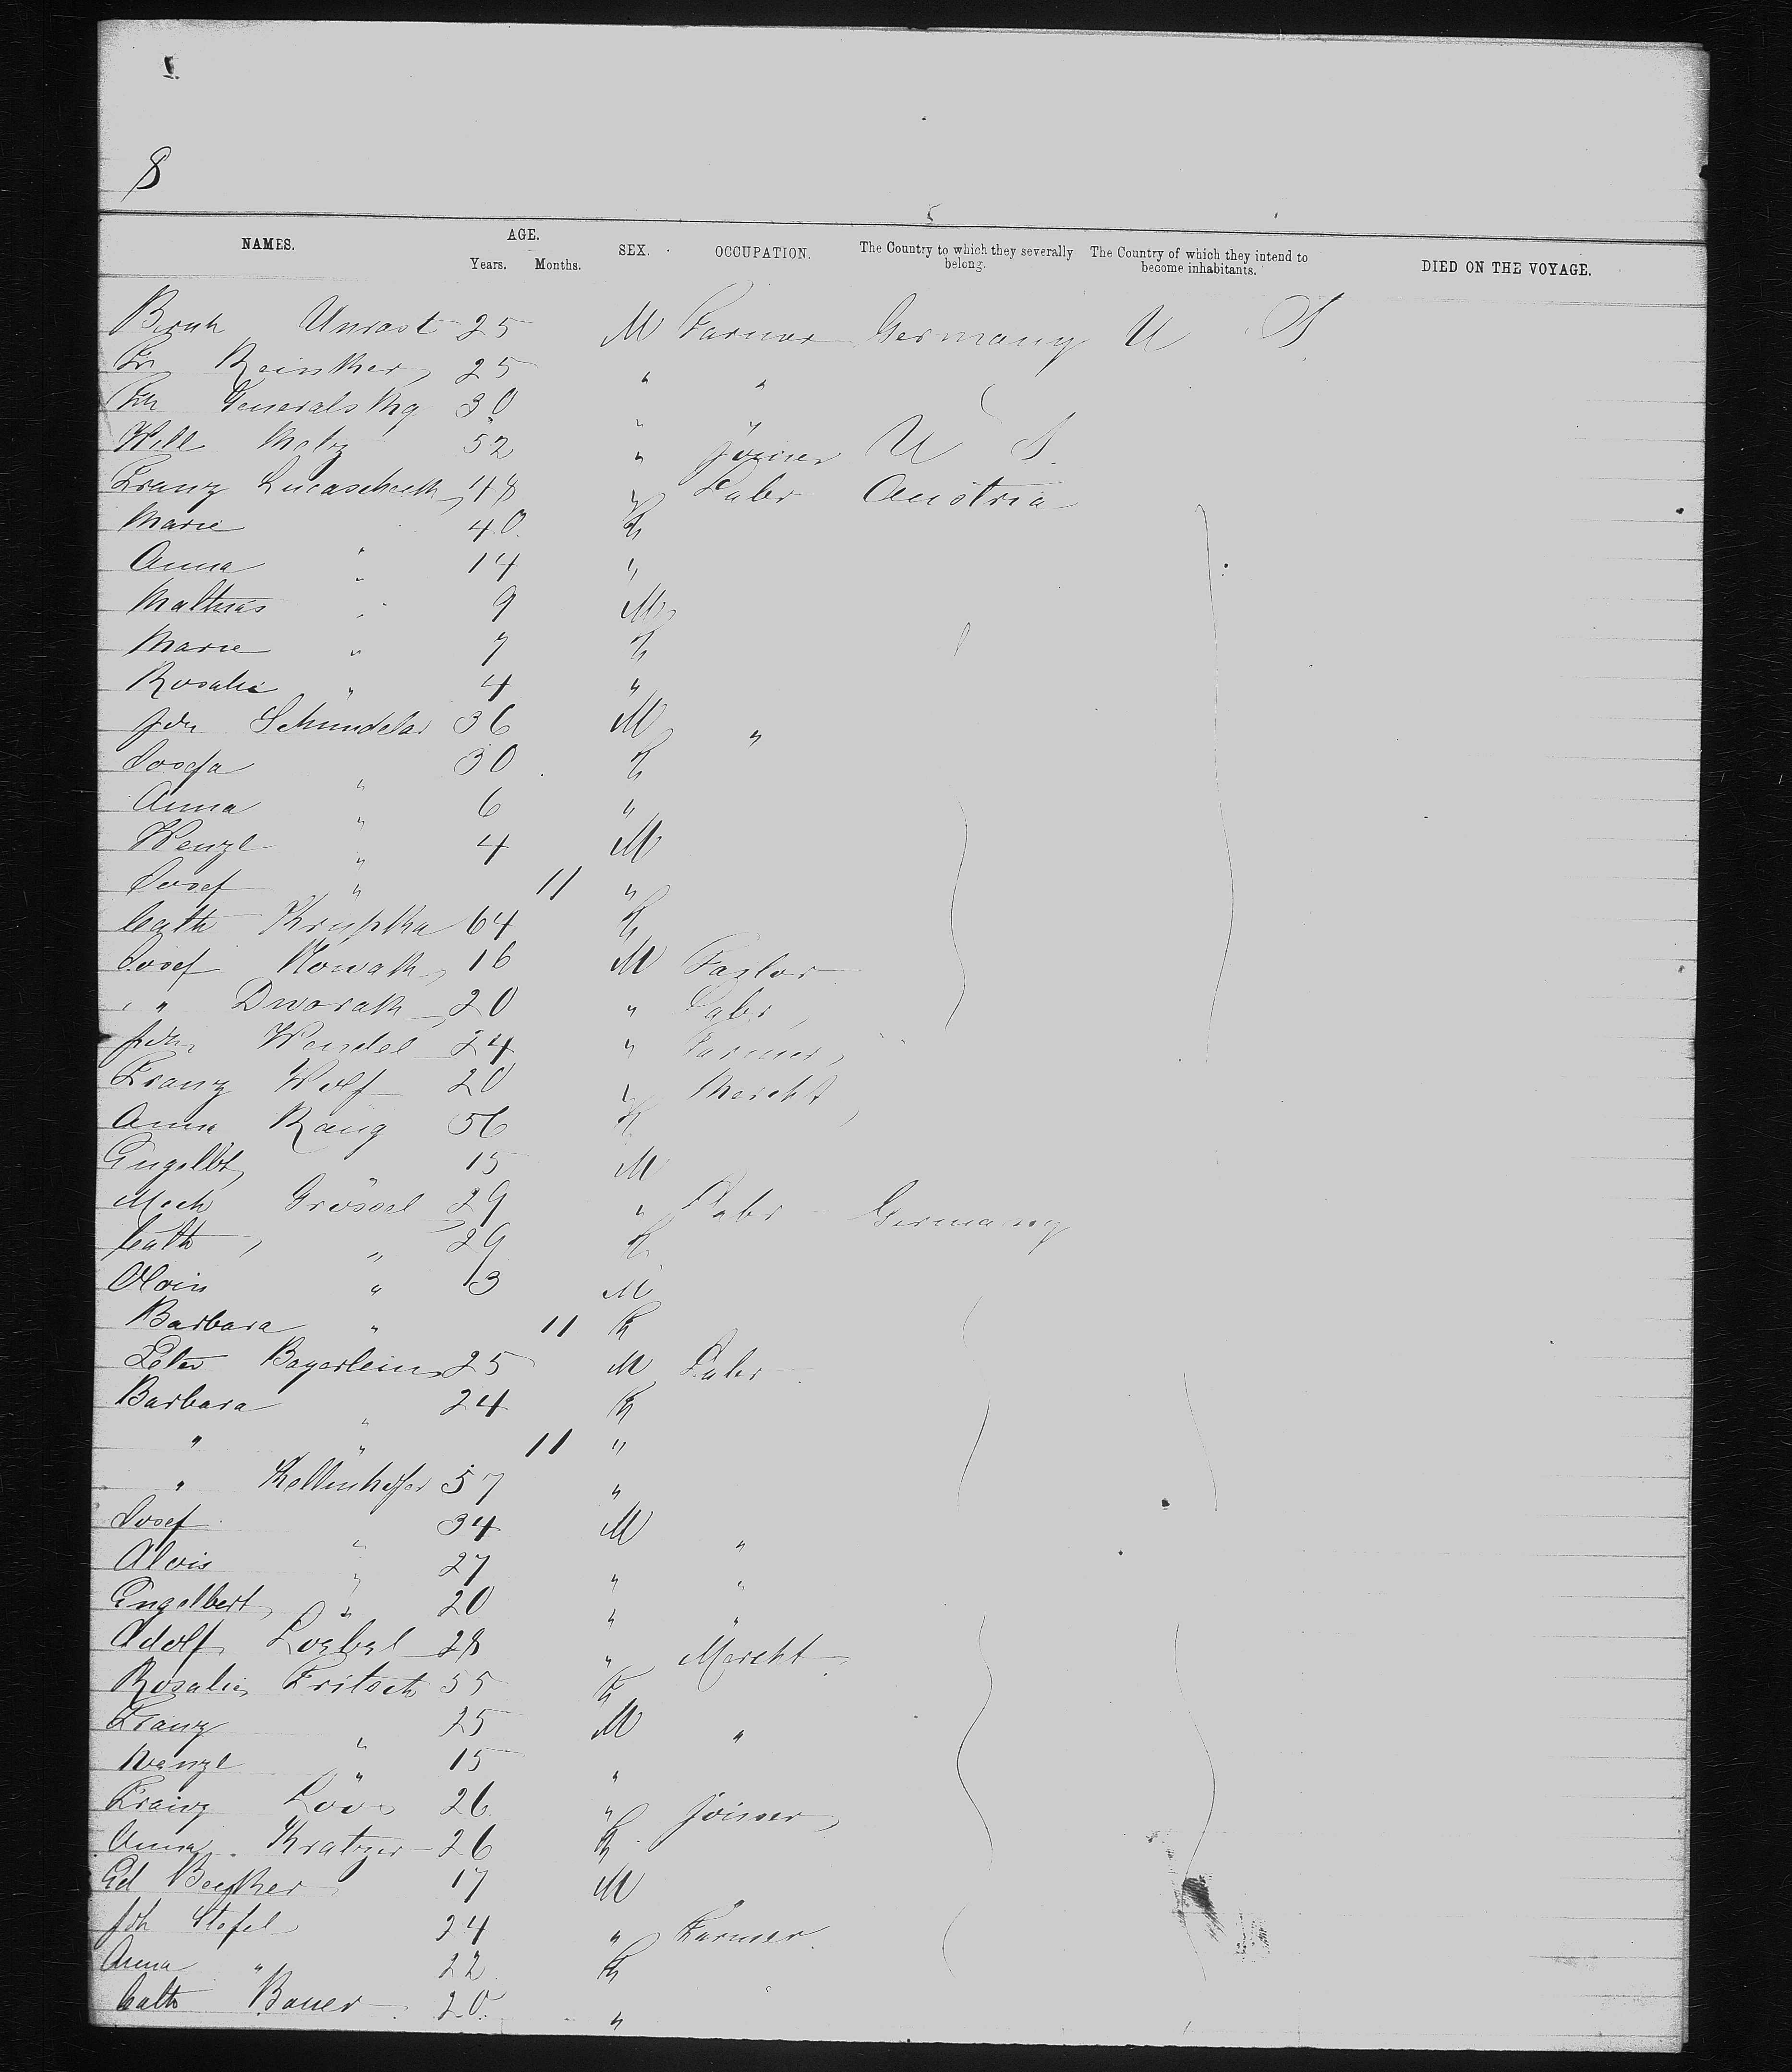 8
NAMES. AGE. Years. Months. SEX. OCCUPATION. The Country to which they severally belong. The Country of which they intend to become inhabitants. DIED ON THE VOYAGE.
Unrast 25 M Farmer Germany U S
Fr Reinker 25 " "
30 " "
Will Metz 52 " Joiner U S
Franz 48 " Labr Austria
Marie " 40 F
Anna " 14 "
Mathias " 9 M
Marie " 7 F
Rosalie " 4 "
Joh Schmindelar 36 M "
Josefa " 30 F
Anna " 6 "
Wenzl " 4 M
Josef " 11 "
Cath Krupka 64 F
Josef Nowak 16 M Taylor
" Dworak 20 " Labr
Joh Wendel 24 " Farmer
Franz Wolf 20 " Mercht
Anna Rang 56 F
Engelbt " 15 M
Mich Grössel 29 " Labr Germany
Cath " 29 F
Alois " 3 M
Barbara " 11 F
Peter Bayerlein 25 M Labr
Barbara " 24 F
" " 11 "
" Kellenhofer 57 "
Josef " 34 M "
Alois " 27 " "
Engelbert " 20 " "
Adolf Loebel 28 " Mercht
Rosalie Fritsch 55 F
Franz " 25 M "
Wenzl " 15 "
Franz Löw 26 " Joiner
Anna Kratzer 26 F
Ed Boepker 17 M
Joh Stofel 24 " Farmer
Anna " 22 F
Cath Bauer 20 "